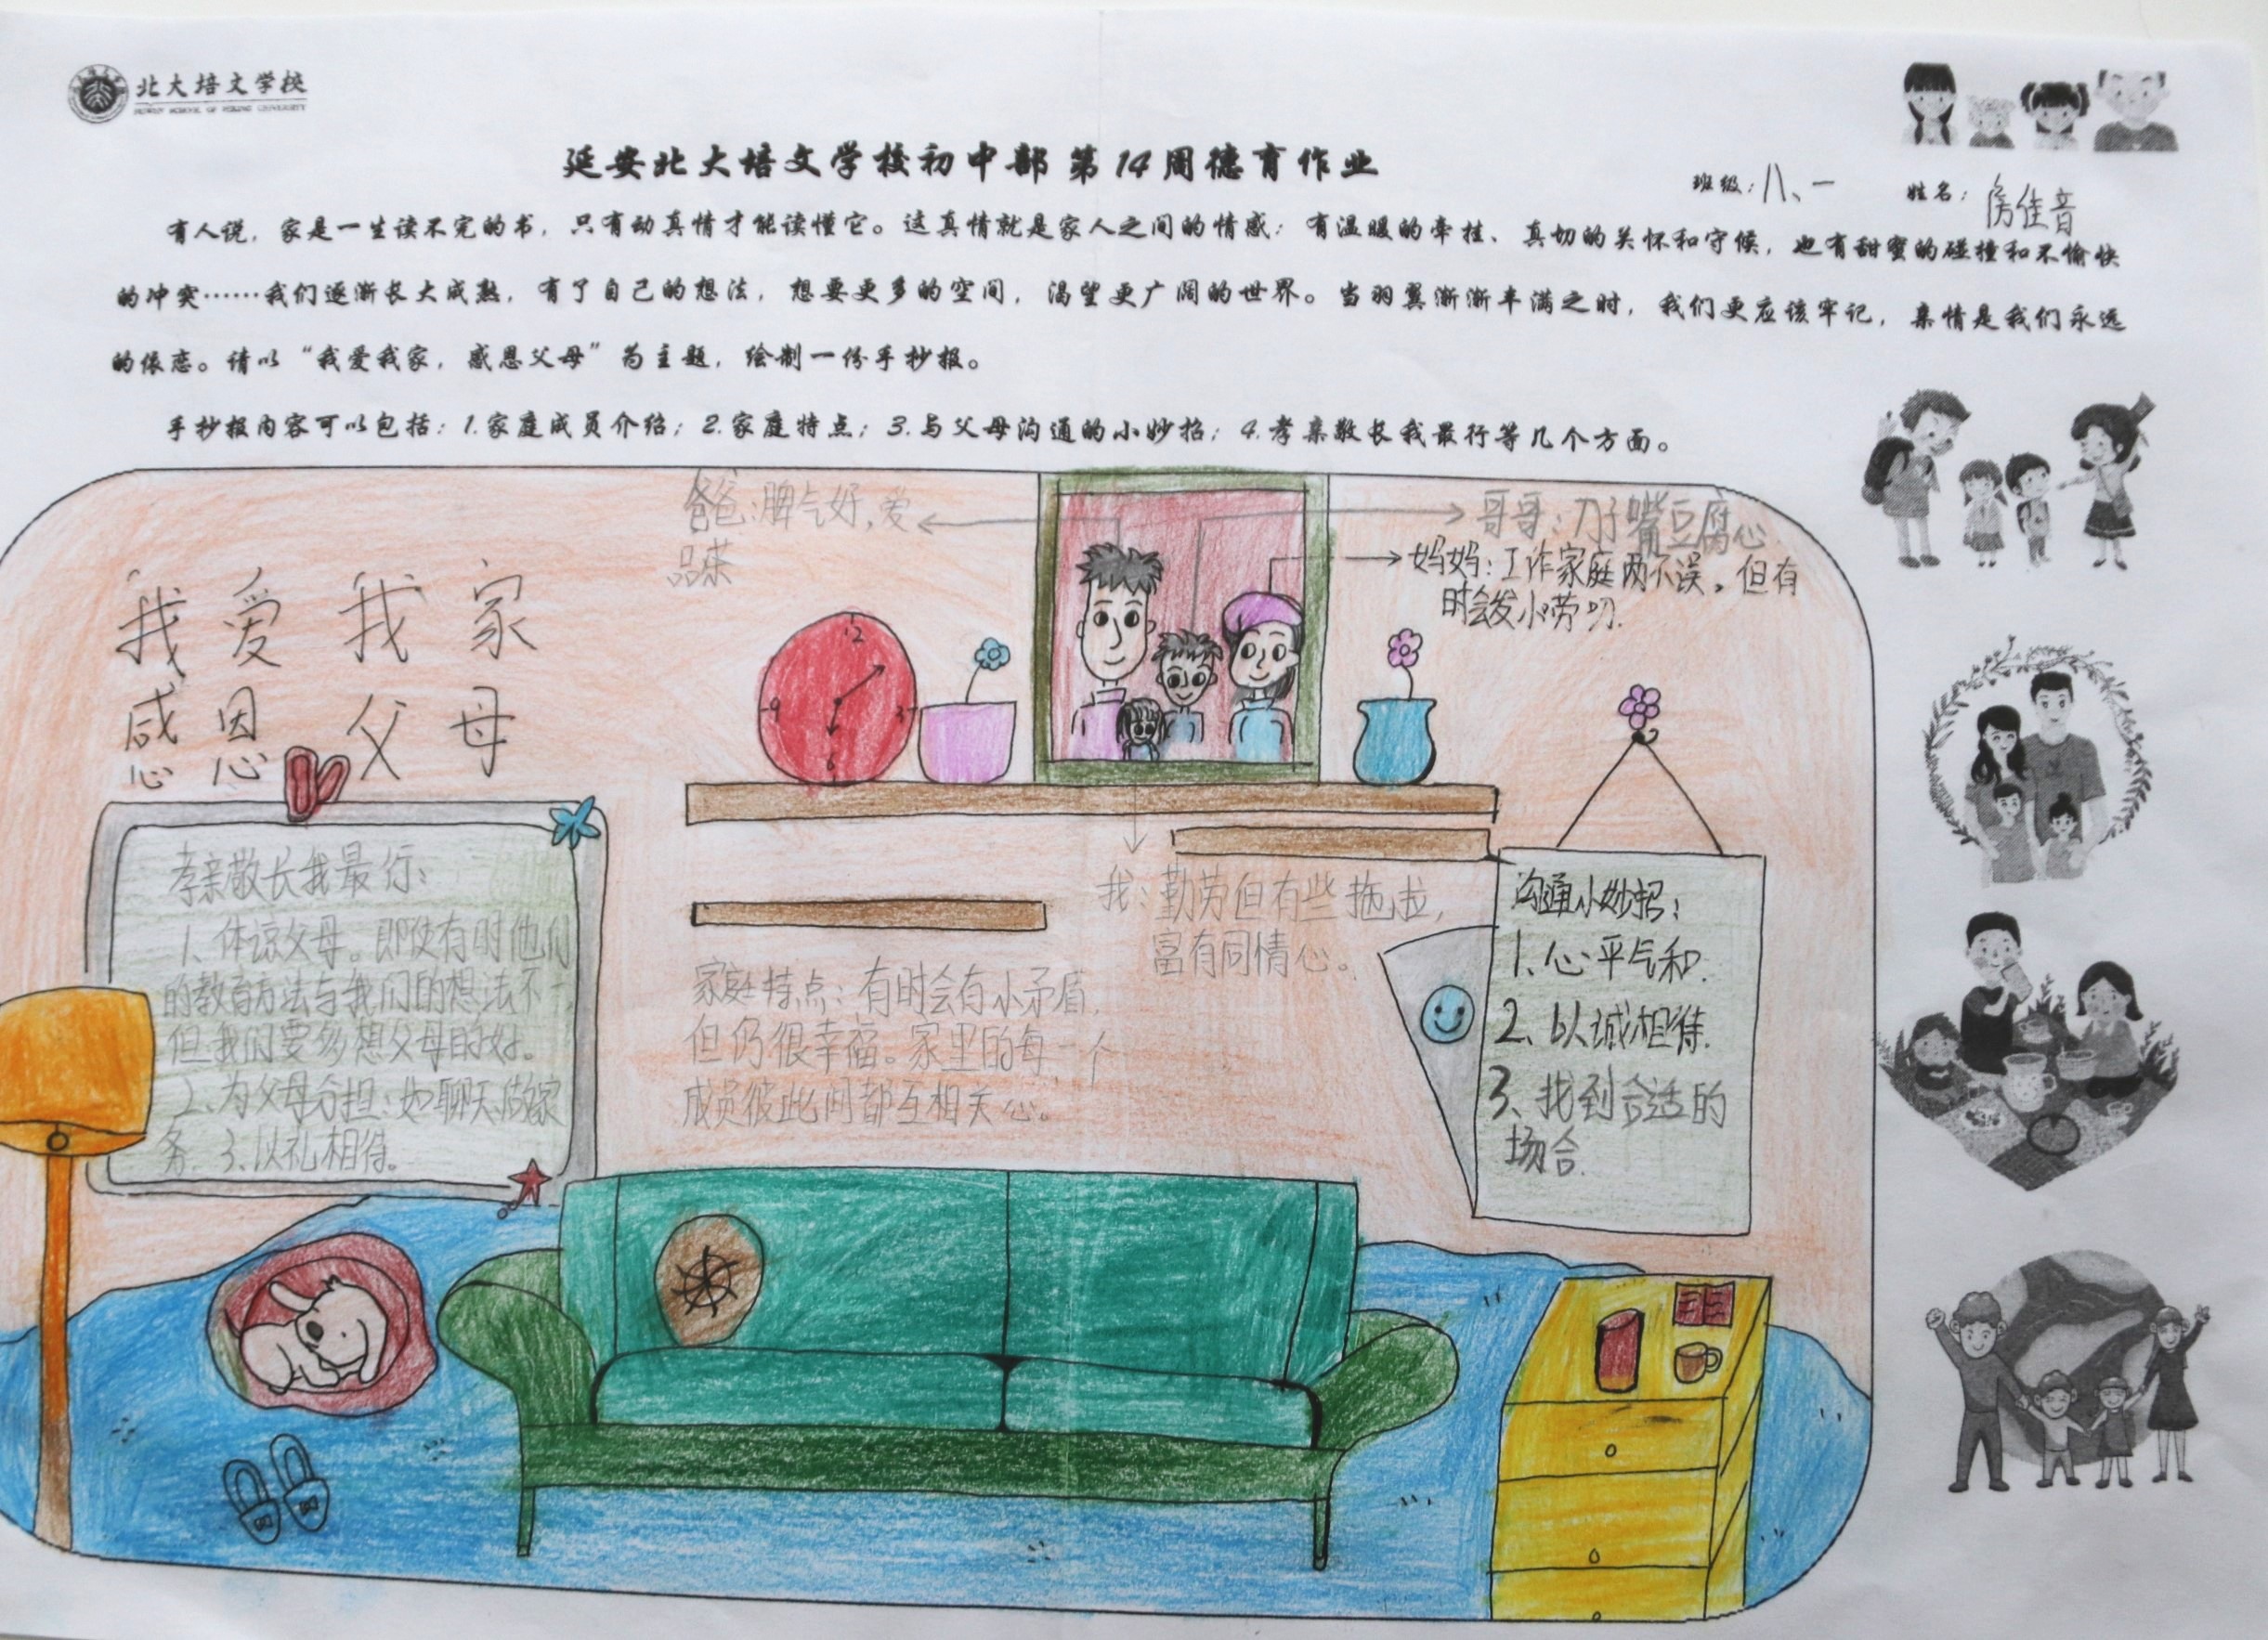 北大培文学校
PEIWEN SCHOOL OF PEKING UNIVERSITY
延安北大培文学校初中部第14周德育作业
班级：八、一 姓名：房佳音
有人说，家是一生读不完的书，只有动真情才能读懂它。这真情就是家人之间的情感：有温暖的牵挂、真切的关怀和守候，也有甜蜜的碰撞和不愉快
的冲突……我们逐渐长大成熟，有了自己的想法，想要更多的空间，渴望更广阔的世界。当羽翼渐渐丰满之时，我们更应该牢记，亲情是我们永远
的依恋。请以“我爱我家，感恩父母”为主题，绘制一份手抄报。
手抄报内容可以包括：1.家庭成员介绍；2.家庭特点；3.与父母沟通的小妙招；4.孝亲敬长我最行等几个方面。
我爱我家
感恩父母
爸爸：脾气好，爱
品茶
哥哥：刀子嘴豆腐心
妈妈：工作家庭两不误，但有
时会发小劳叨.
12
3
6
9
我：勤劳但有些拖拉，
富有同情心。
孝亲敬长我最行：
1、体谅父母。即使有时他们
的教育方法与我们的想法不一，
但我们要多想父母的好。
2、为父母分担：如聊天、做家
务. 3、以礼相待。
家庭特点：有时会有小矛盾，
但仍很幸福。家里的每一个
成员彼此间都互相关心。
沟通小妙招：
1、心平气和.
2、以诚相待.
3、找到合适的
场合.